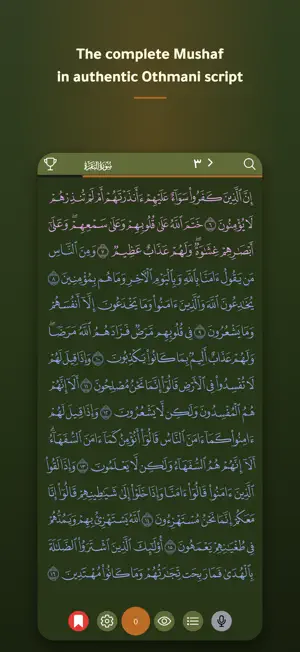 The complete Mushaf
in authentic Othmani script
سُورَةُ البَقَرَةِ
٣
إِنَّ ٱلَّذِينَ كَفَرُوا۟ سَوَآءٌ عَلَيْهِمْ ءَأَنذَرْتَهُمْ أَمْ لَمْ تُنذِرْهُمْ
لَا يُؤْمِنُونَ ٦ خَتَمَ ٱللَّهُ عَلَىٰ قُلُوبِهِمْ وَعَلَىٰ سَمْعِهِمْ ۖ وَعَلَىٰٓ
أَبْصَٰرِهِمْ غِشَٰوَةٌ ۖ وَلَهُمْ عَذَابٌ عَظِيمٌ ٧ وَمِنَ ٱلنَّاسِ
مَن يَقُولُ ءَامَنَّا بِٱللَّهِ وَبِٱلْيَوْمِ ٱلْءَاخِرِ وَمَا هُم بِمُؤْمِنِينَ ٨
يُخَٰدِعُونَ ٱللَّهَ وَٱلَّذِينَ ءَامَنُوا۟ وَمَا يَخْدَعُونَ إِلَّآ أَنفُسَهُمْ
وَمَا يَشْعُرُونَ ٩ فِى قُلُوبِهِم مَّرَضٌ فَزَادَهُمُ ٱللَّهُ مَرَضًا ۖ
وَلَهُمْ عَذَابٌ أَلِيمٌۢ بِمَا كَانُوا۟ يَكْذِبُونَ ١٠ وَإِذَا قِيلَ لَهُمْ
لَا تُفْسِدُوا۟ فِى ٱلْأَرْضِ قَالُوٓا۟ إِنَّمَا نَحْنُ مُصْلِحُونَ ١١ أَلَآ إِنَّهُمْ
هُمُ ٱلْمُفْسِدُونَ وَلَٰكِن لَّا يَشْعُرُونَ ١٢ وَإِذَا قِيلَ لَهُمْ
ءَامِنُوا۟ كَمَآ ءَامَنَ ٱلنَّاسُ قَالُوٓا۟ أَنُؤْمِنُ كَمَآ ءَامَنَ ٱلسُّفَهَآءُ ۗ
أَلَآ إِنَّهُمْ هُمُ ٱلسُّفَهَآءُ وَلَٰكِن لَّا يَعْلَمُونَ ١٣ وَإِذَا لَقُوا۟
ٱلَّذِينَ ءَامَنُوا۟ قَالُوٓا۟ ءَامَنَّا وَإِذَا خَلَوْا۟ إِلَىٰ شَيَٰطِينِهِمْ قَالُوٓا۟ إِنَّا
مَعَكُمْ إِنَّمَا نَحْنُ مُسْتَهْزِءُونَ ١٤ ٱللَّهُ يَسْتَهْزِئُ بِهِمْ وَيَمُدُّهُمْ
فِى طُغْيَٰنِهِمْ يَعْمَهُونَ ١٥ أُو۟لَٰٓئِكَ ٱلَّذِينَ ٱشْتَرَوُا۟ ٱلضَّلَٰلَةَ
بِٱلْهُدَىٰ فَمَا رَبِحَت تِّجَٰرَتُهُمْ وَمَا كَانُوا۟ مُهْتَدِينَ ١٦
0